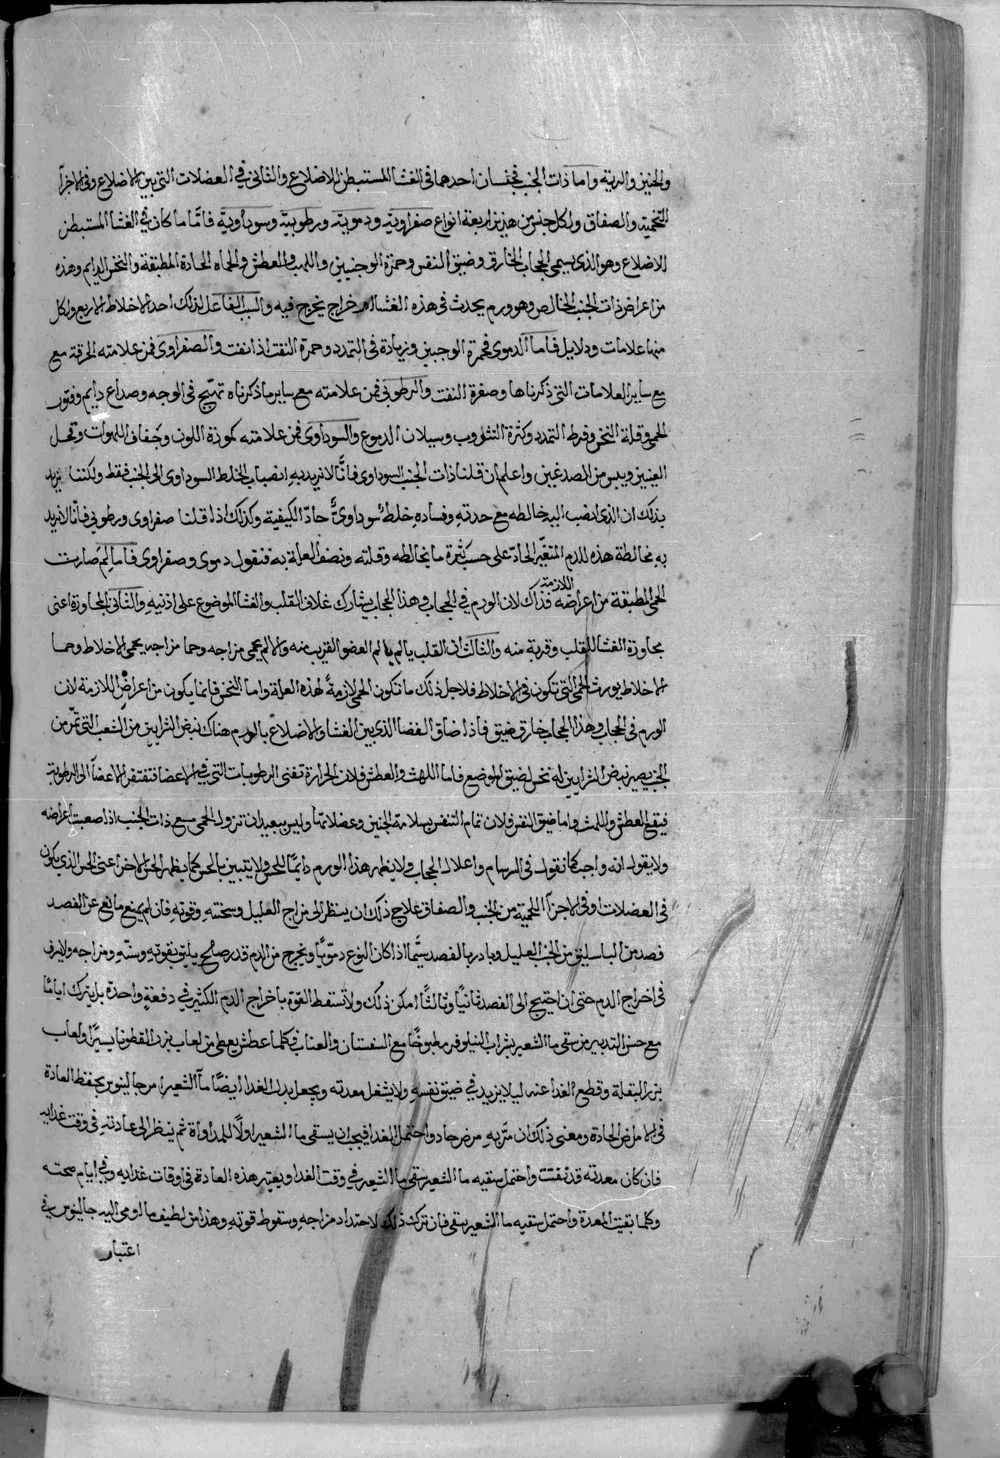 والحنين والدبته واما ذات الجنب فجنسان احدهما فى الغشا المستبطن للاضلاع والثانى فى العضلات التى بين الاضلاع وفى الاجزآ
اللحمية والصفاق ولكل جنس من هذين اربعة انواع صفراوية ودموية ورطوبية وسوداوية فامّا ما كان فى الغشا المستبطن
للاضلاع وهو الذى يسمى الحجاب الخارق وضيق النفس وحمرة الوجنتين واللهب والعطش والحماه الحادة المطبقة والنخس الدايم وهذه
من اعراض ذات الجنب الخالص وهو ورم يحدث فى هذه الغشا او خراج يخرج فيه والسبب الفاعل لذلك احد الاخلاط الاربع ولكل
منها علامات ودلايل فاما الدموى فحمرة الوجنين وزيادة فى التمدد وحمرة النفث اذا نفث والصفراوى فمن علامته الحرقة مع
مع ساير العلامات التى ذكرناها وصفرة النفث والرطوبى فمن علامته مع ساير ما ذكرناه تهيّج فى الوجه وصداع دايم وفتور
الحمى وقلة النخس وفرط التمدد وكثرة التثاوب وسيلان الدموع والسوداوى فمن علامته كمودة اللون وجفاف اللهوات وقحل
العينين ويبس من الصدغين واعلم ان قلنا ذات الجنب السوداوى فانّا لا نريد به انصباب الخلط السوداوى الى الجنب فقط ولكننا نريد
بذلك ان الذى انصب اليه خالطه مع حدته وفساده خلط سوداوىٌ حادّ الكيفية وكذلك اذا قلنا صفراوى ورطوبى فانّا لا نريد
به مخالطة هذه للدم المتغيّر الحادّ على حسب كثرة ما يخالطه وقلته ونصف العلة به فنقول دموى وصفراوى فاما لِمَ صارت
الحمى المطبقة من اعراضه اللازمة فذاك لان الورم فى الحجاب وهذا الحجاب يشارك غلاف القلب والغشا الموضوع على اذنيه والثانى المجاورة اعنى
مجاورة الغشا للقلب وقربة منه والثالث ان القلب يالم بالم العضو القريب منه والالم يحمى مزاجه وحما مزاجه يحمى الاخلاط وحما
الاخلاط يورث الحمى التى تكون فى الاخلاط فلاجل ذلك ما تكون الحمى لازمة لهذه العلة واما النخس فانما يكون من اعراض اللازمة لان
الورم فى الحجاب وهذا الحجاب خارق ضيق فاذا ضاق الفضا الذى بين الغشا والاضلاع بالورم هناك نبض الشرايين من الشعب التى تمرّ من
الجنب يصير نبض الشرايين له نخس لضيق الموضع فاما اللهث والعطش فلان الحرارة تفنى الرطوبات التى فى الاعضا فتفتقر الاعضآ الى الرطوبة
فيقع العطش واللهث واما ضيق النفس فلان تمام التنفس بسلامة الجنين وعضلاتها وليس ببعيد ان تزول الحمى مع ذات الجنب اذا صعبت اعراضه
ولا يقول انه واجب كما نقول فى السرسام واعلال الحجاب ولا يظهر هذا الورم دايمًا للحس ولا يتبين بالحس كما يظهر الجنس الاخر اعنى الجنس الذى يكون
فى العضلات او فى الاجزآ اللحمية من الجنب والصفاق علاج ذلك ان ينظر الى مزاج العليل وسحنته وقوته فان لم يمنع مانع عن الفصد
فصد من الباسليق من الجنب العليل وبادر بالفصد سيّما اذا كان النوع دمويًا ويخرج من الدم قدر صالح يليق بقوته وسنّه ومزاجه ولا يسرف
فى اخراج الدم حتى ان احتيج الى الفصد ثانيًا وثالثًا امكن ذلك ولا تسقط القوّة باخراج الدم الكثير فى دفعة واحدة بل يترك ايامًا
مع حسن التدبير من سقى ما الشعير بشراب النيلوفر مطبوخًا مع السفستان والعناب فكلما عطش يعطى من لعاب بزر القطونا يسيرًا ولعاب
بزر البقلة وقطع الغدا عنه ليلا يزيد فى ضيق نفسه ولا يشغل معدته ويجعل بدل الغدا ايضًا مآ الشعير امر جالينوس بحفظ العادة
فى الامراض الحادة ومعنى ذلك ان مرّ به مرض حاد واحتمل الغدا فيجب ان يسقى ما الشعير اولًا للمداواة ثم ينظر الى عادته فى وقت غدايه
فان كان معدته قد نقيت واحتمل سقيه ما الشعير سقى ما الشعير فى وقت الغدا ويغير هذه العادة فى اوقات غدايه وفى ايام صحته
وكلما نقيت المعدة واحتمل سقيه ما الشعير سقى فان ترك ذلك لاحتداد مزاجه وسقوط قوته وهذا من لطيف ما اومى اليه جالينوس فى
اعتبار